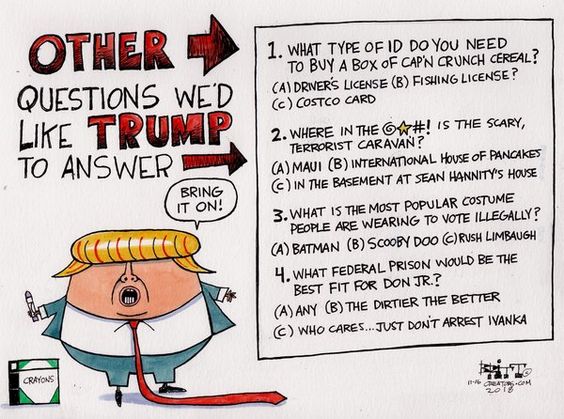 OTHER
QUESTIONS WE'D
LIKE TRUMP
TO ANSWER
BRING
IT ON!
CRAYONS
1. WHAT TYPE OF ID DO YOU NEED
TO BUY A BOX OF CAP'N CRUNCH CEREAL?
(A) DRIVER'S LICENSE (B) FISHING LICENSE?
(C) COSTCO CARD
2. WHERE IN THE @★#! IS THE SCARY,
TERRORIST CARAVAN?
(A) MAUI (B) INTERNATIONAL HOUSE OF PANCAKES
(C) IN THE BASEMENT AT SEAN HANNITY'S HOUSE
3. WHAT IS THE MOST POPULAR COSTUME
PEOPLE ARE WEARING TO VOTE ILLEGALLY?
(A) BATMAN (B) SCOOBY DOO (C) RUSH LIMBAUGH
4. WHAT FEDERAL PRISON WOULD BE THE
BEST FIT FOR DON JR.?
(A) ANY (B) THE DIRTIER THE BETTER
(C) WHO CARES...JUST DON'T ARREST IVANKA
BRITT ©
11-16 CREATORS.COM
2018